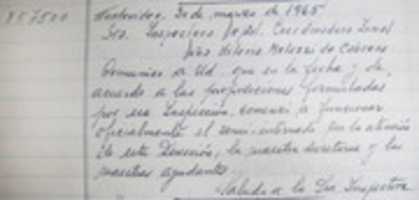 857500
Montevideo, 30 de marzo de 1965
Sra. Inspectora Dptal. Coordinadora Zonal
Comunico a Ud. que en la fecha y de
acuerdo a las proposiciones formuladas
por esa Inspección, comenzó a funcionar
oficialmente el semi-internado por la atención
de esta Dirección, la maestra secretaria y las
maestras ayudantes.
Saluda a la Sra. Inspectora